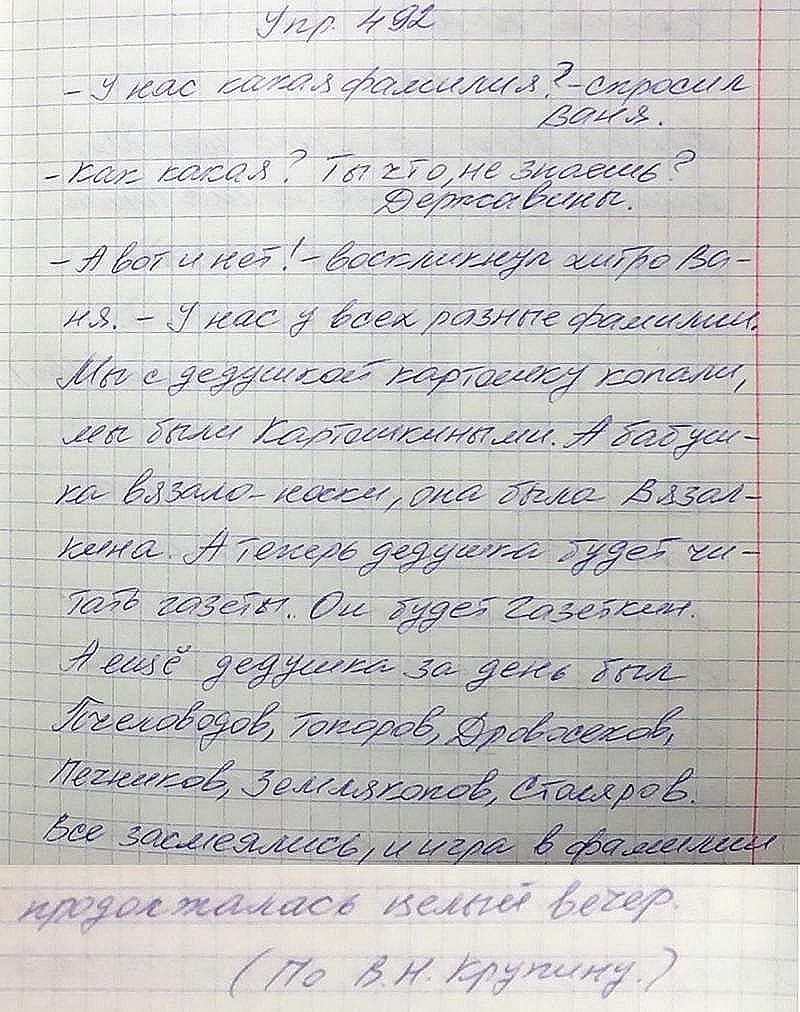 Упр. 492
- У нас какая фамилия? - спросил
Ваня.
- Как какая? Ты что, не знаешь?
Державины.
- А вот и нет! - воскликнул хитро Ва-
ня. - У нас у всех разные фамилии.
Мы с дедушкой картошку копали,
мы были Картошкиными. А бабуш-
ка вязала - носки, она была Вязал-
кина. А теперь дедушка будет чи-
тать газеты.. Он будет Газеткин.
А ещё дедушка за день был
Пчеловодов, Топоров, Дровосеков,
Печников, Землякопов, Столяров.
Все засмеялись, и игра в фамилии
продолжалась целый вечер.
(По В.Н. Крупину.)